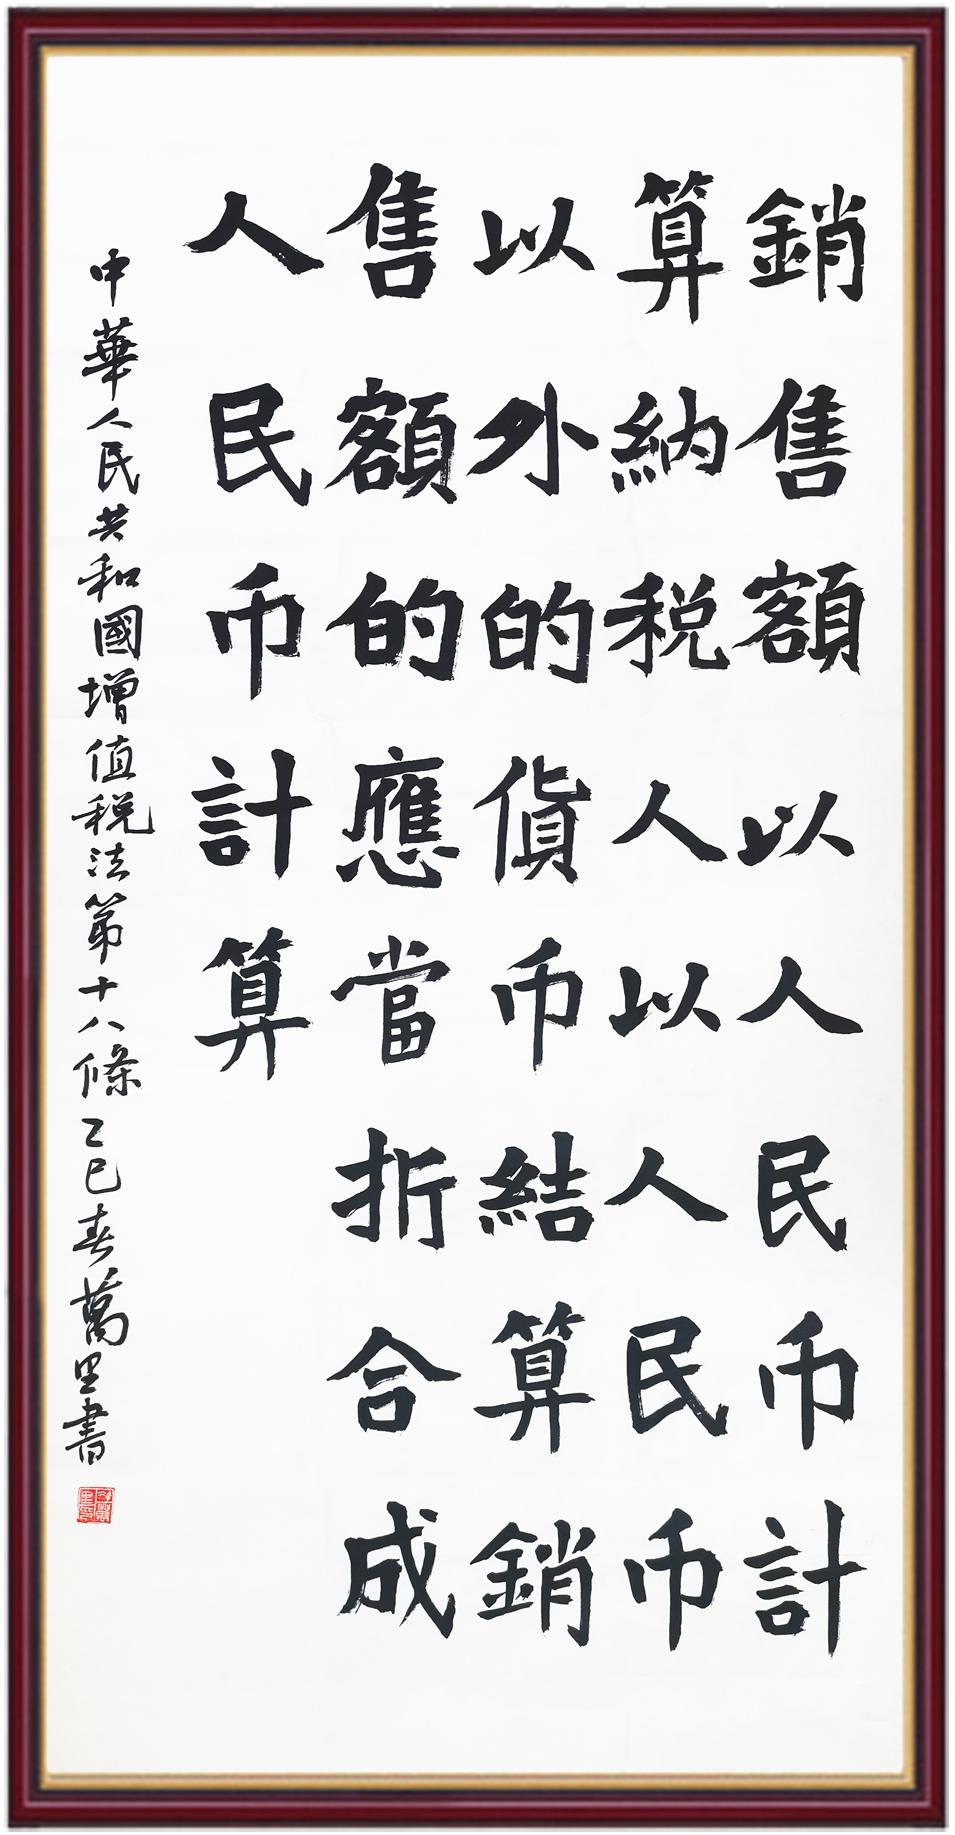 銷售額以人民币計
算納税人以人民币
以外的貨币結算銷
售額的應當折合成
人民币計算
中華人民共和國增值税法第十八條乙巳春萬里書